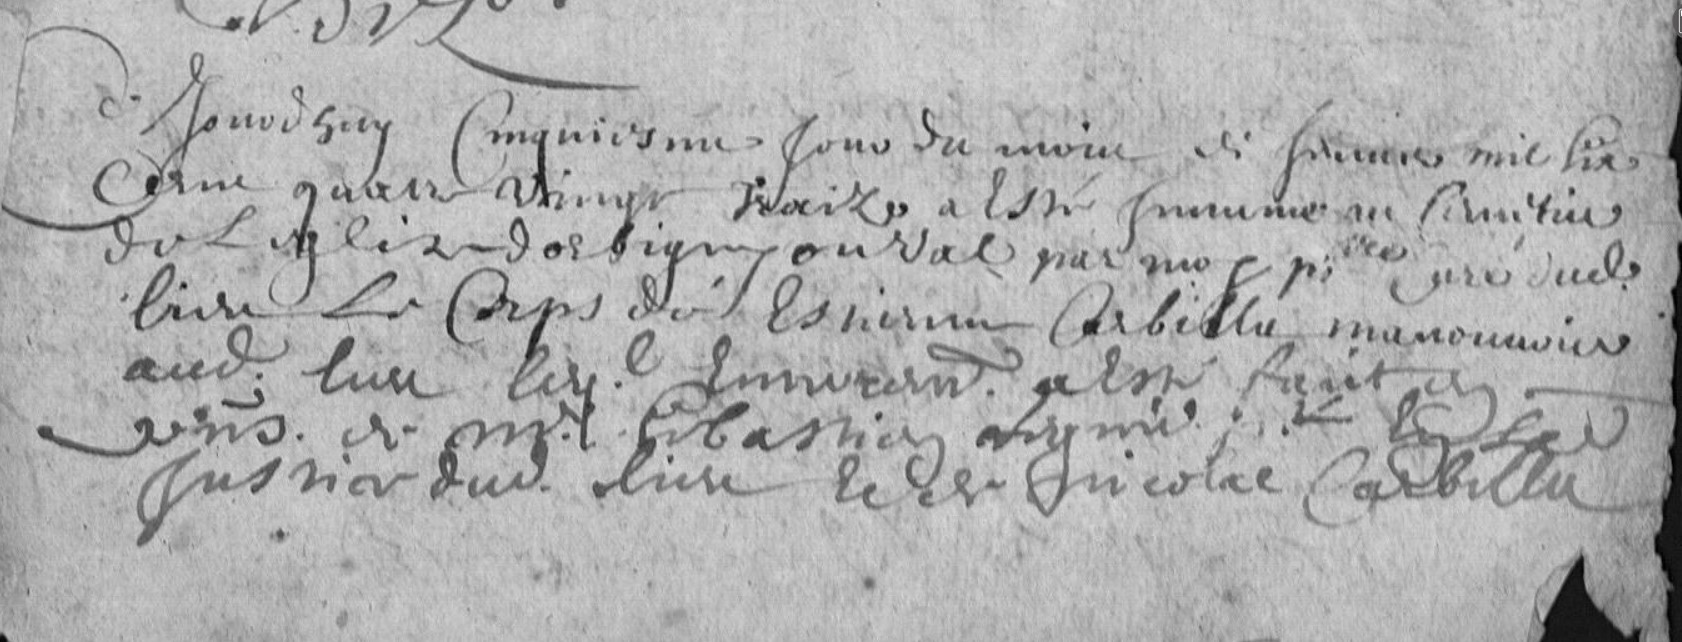 Jourdhuy Cinquiesme Jour du mois de Januier mil six
Cens quattre vingt traize a Esté Jnhumé au Cimetiere
de L eglise dorbigny au Val par moy p.bre Curé dud.
lieu Le Corps de Estienne Carbillet manouurier
aud. lieu leq.l Enterrem.t a Esté fait en
pr̃ns. de M.e Sebastien
Justice dud. lieu Et de Nicolas Carbillet